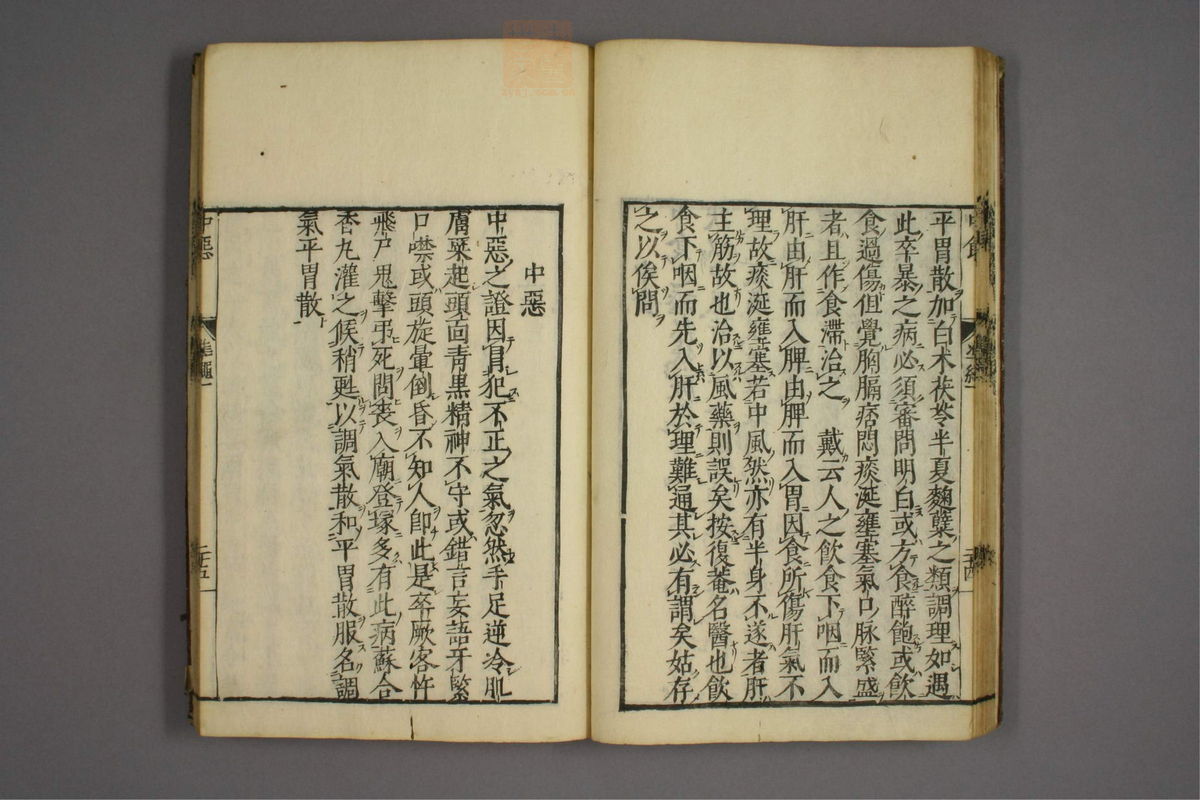 平胃散加白术茯苓半夏麴糵之類調理如遇
此卒暴之病必須審問明白或方食醉飽或飲
食過傷但覺胸膈痞悶痰涎壅塞氣口脉緊盛
者且作食滯治之 戴云人之飲食下咽而入
肝由肝而入脾由脾而入胃因食所傷肝氣不
理故痰涎壅塞若中風然亦有半身不遂者肝
主筋故也治以風藥則誤矣按復菴名醫也飲
食下咽而先入肝於理難通其必有謂矣姑存
之以俟問
中惡
中惡之證因冒犯不正之氣忽然手足逆冷肌
膚粟起頭面青黑精神不守或錯言妄語牙緊
口噤或頭旋暈倒昏不知人即此是卒厥客忤
飛尸鬼擊弔死問喪入廟登塚多有此病蘇合
香丸灌之候稍甦以調氣散和平胃散服名調
氣平胃散
中惡
準繩一
二十五